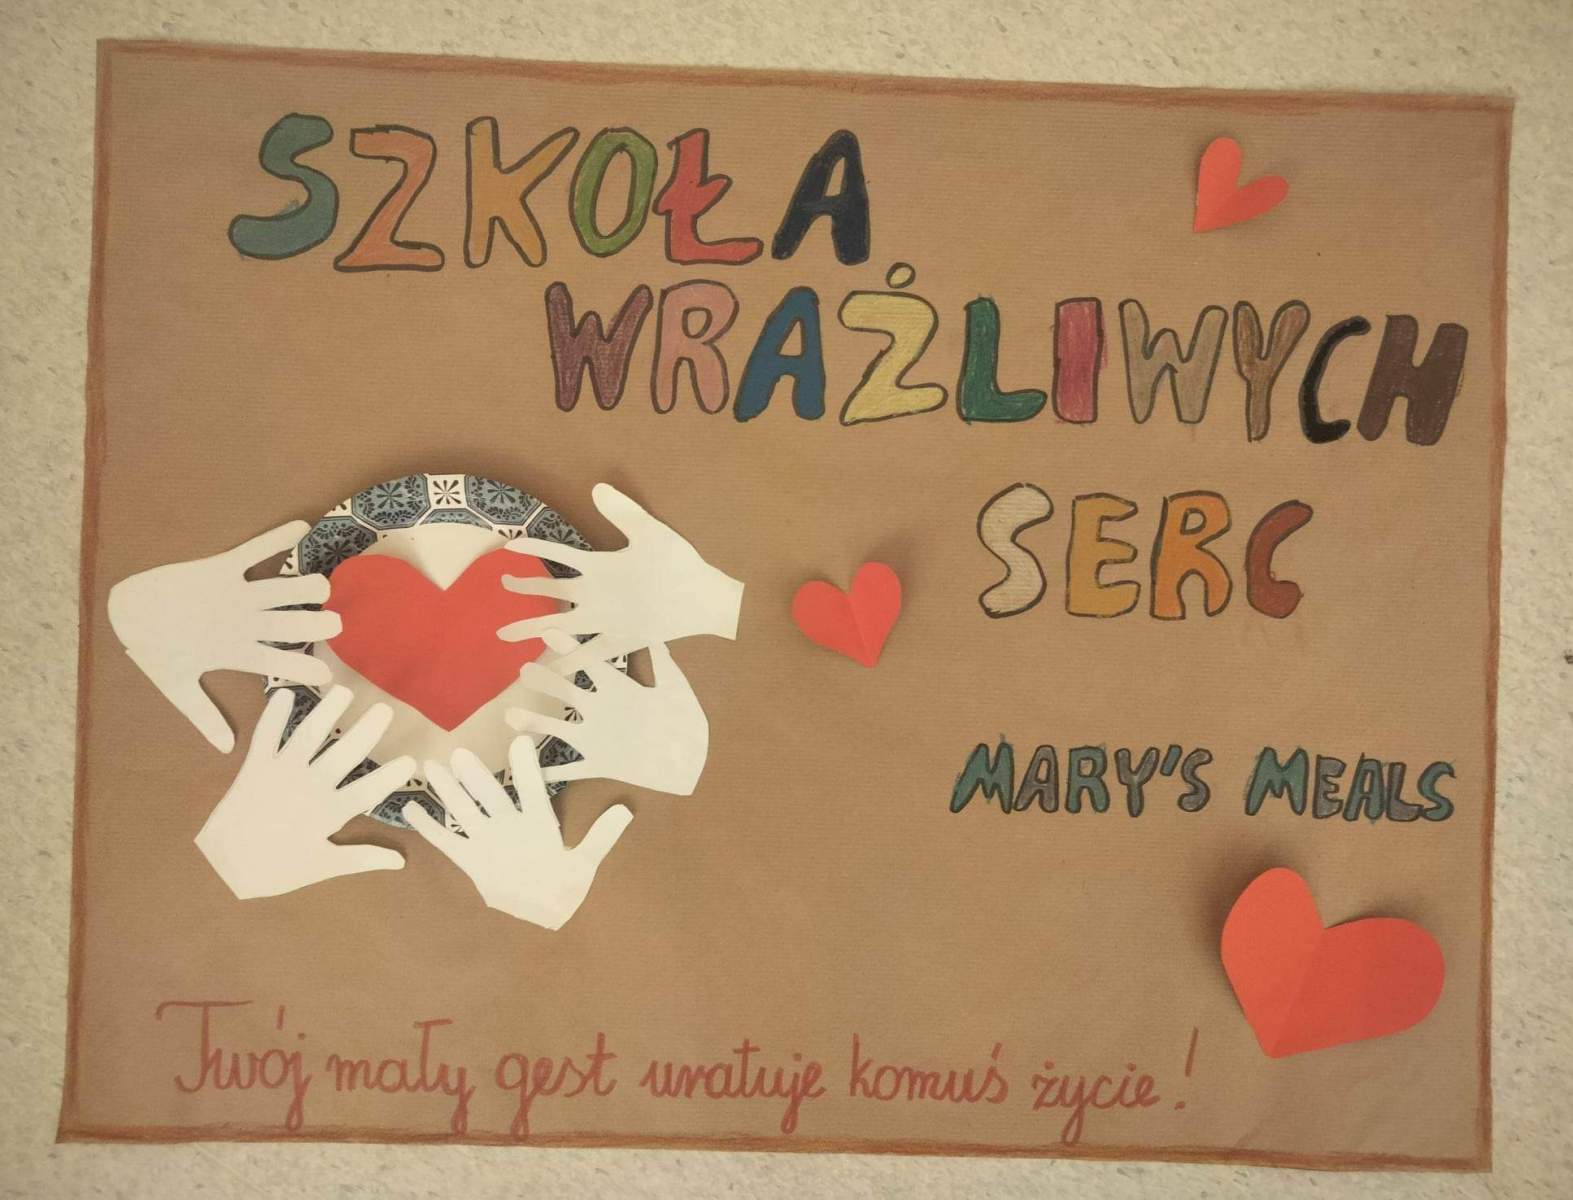 SZKOŁA
WRAŻLIWYCH
SERC
MARY'S MEALS
Twój mały gest uratuje komuś życie!